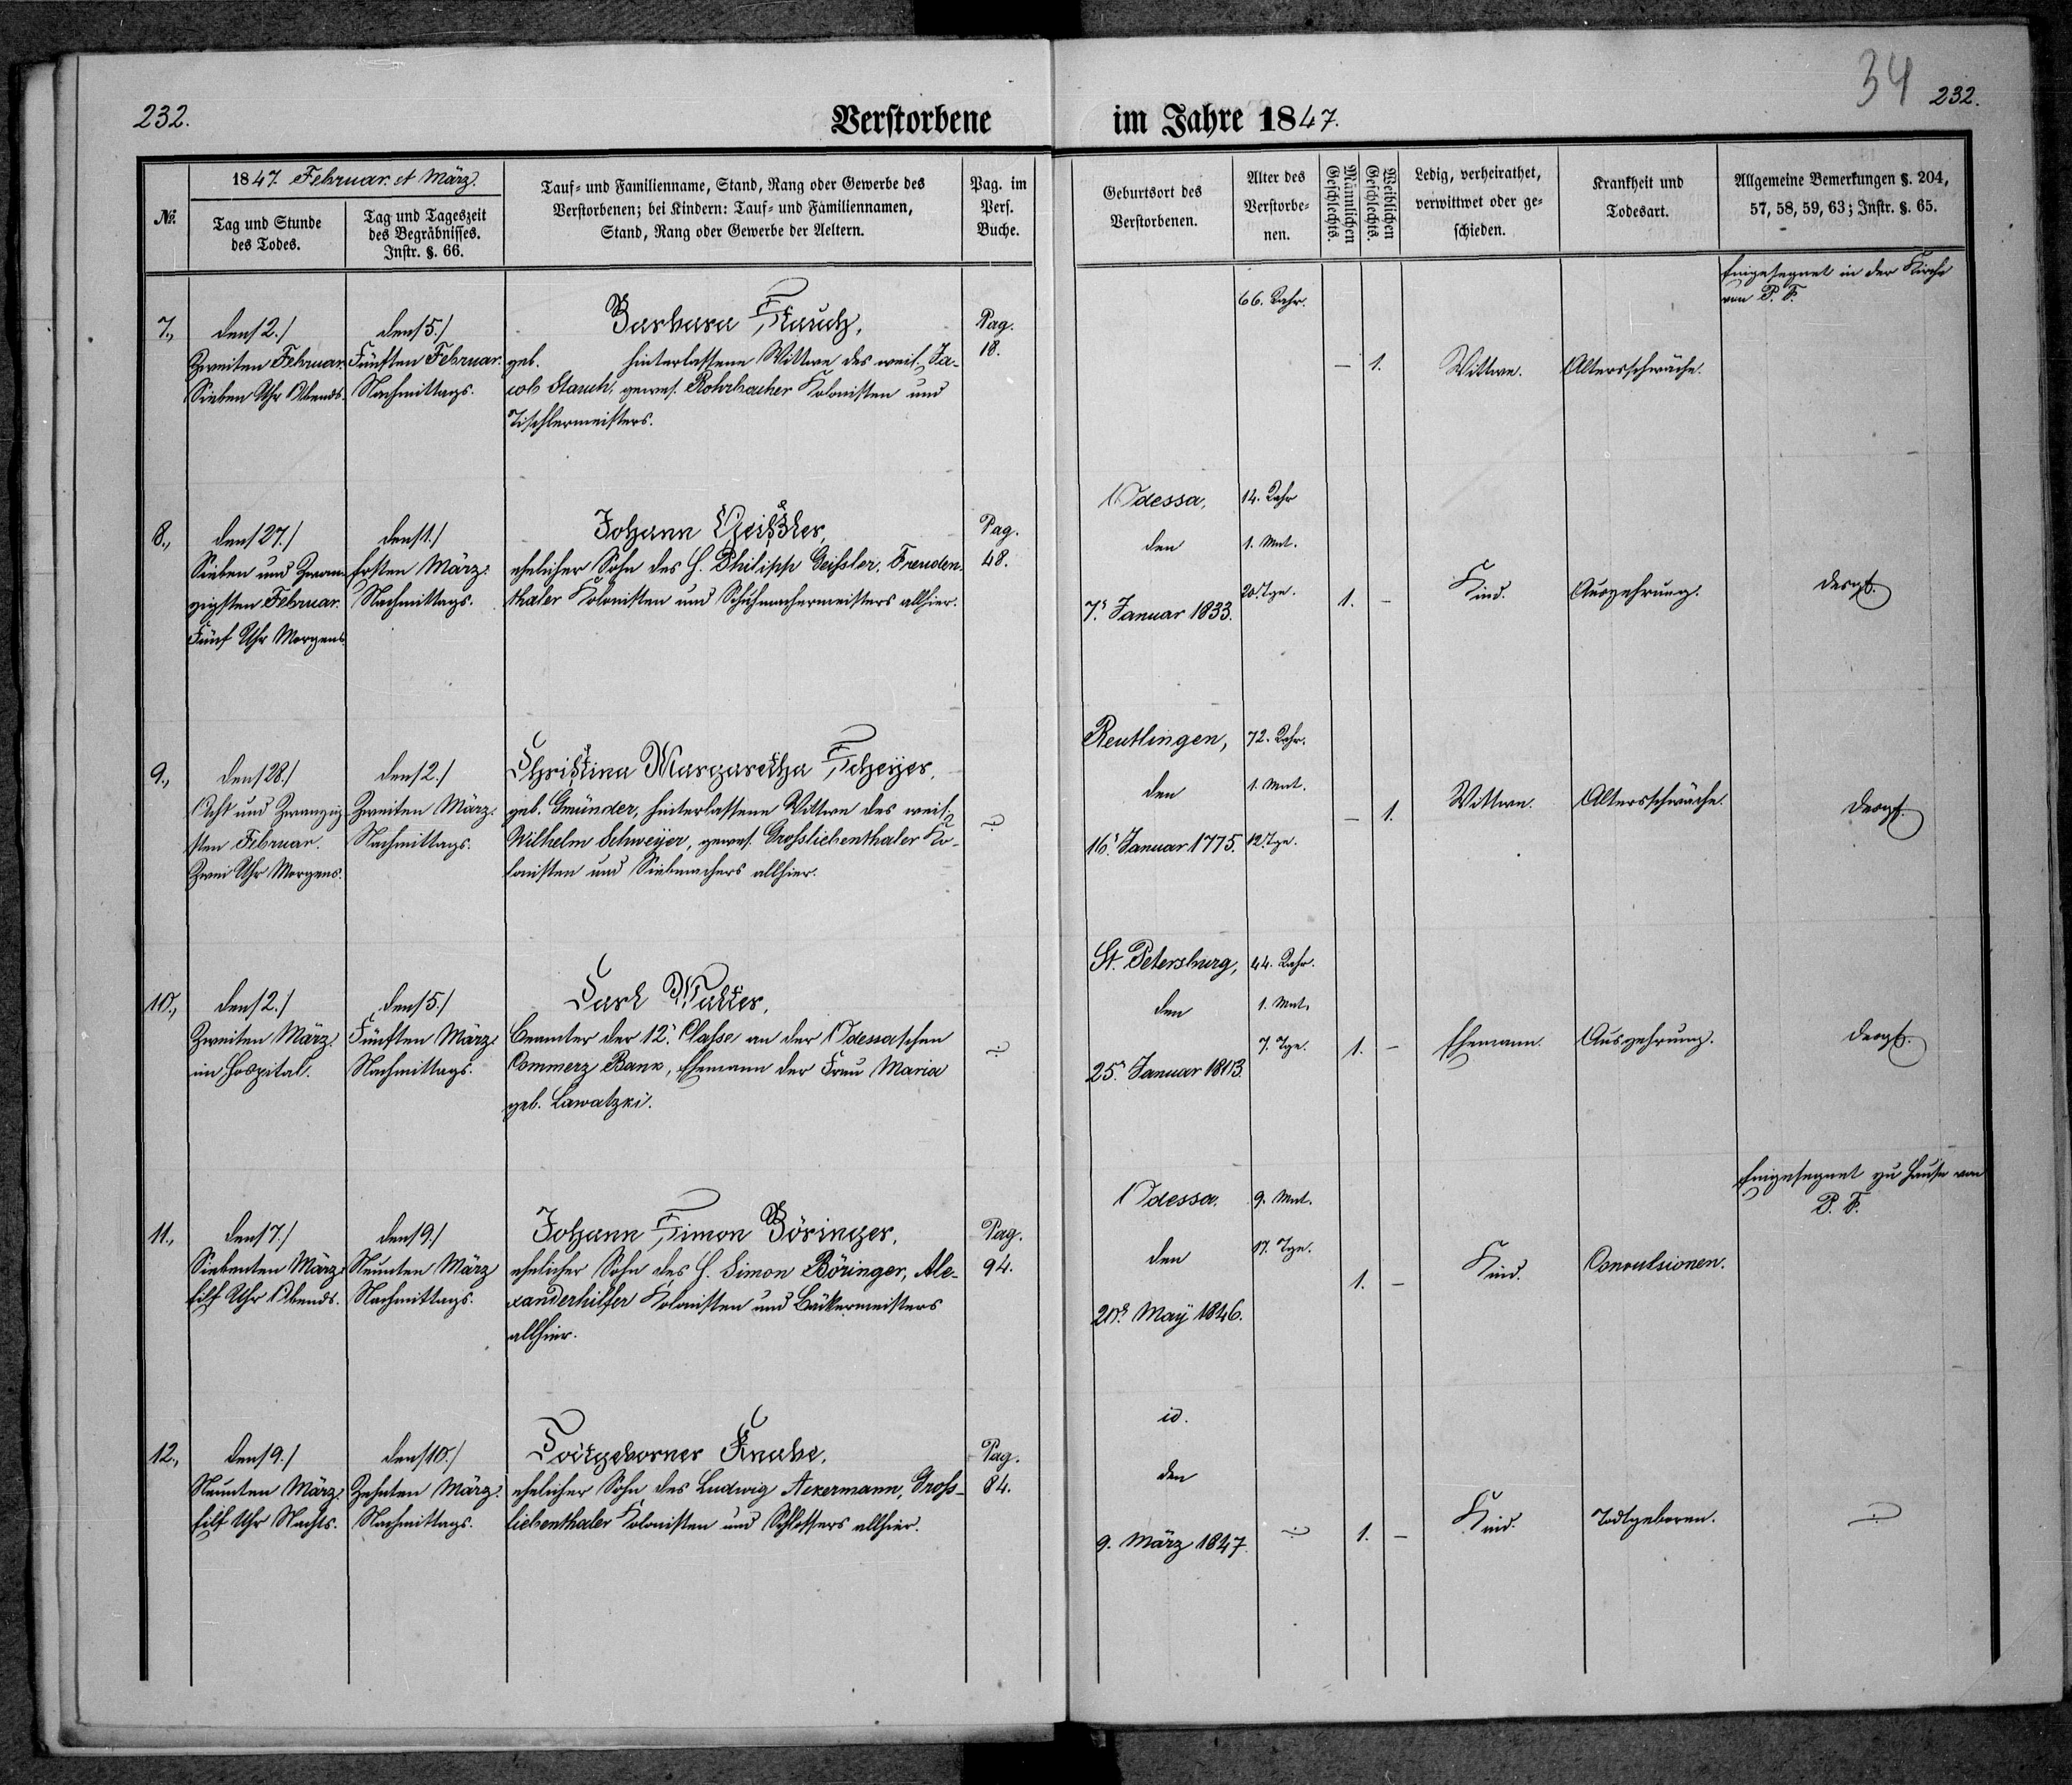 232.
Verstorbene
im Jahre 1847.
34
232.
№.
1847. Februar. et März.
Tag und Stunde
des Todes.
Tag und Tageszeit
des Begräbnisses.
Instr. §. 66.
Tauf- und Familienname, Stand, Rang oder Gewerbe des
Verstorbenen; bei Kindern: Tauf- und Familiennamen,
Stand, Rang oder Gewerbe der Aeltern.
Pag. im
Pers.
Buche.
Geburtsort des
Verstorbenen.
Alter des
Verstorbe-
nen.
Männlichen
Geschlechts.
Weiblichen
Geschlechts.
Ledig, verheirathet,
verwittwet oder ge-
schieden.
Krankheit und
Todesart.
Allgemeine Bemerkungen §. 204,
57, 58, 59, 63; Instr. §. 65.
7.,
den 2./
Zweiten Februar.
Sieben Uhr Abends.
den 5./
Fünften Februar.
Nachmittags.
Barbara Stauch,
geb. hinterlassene Wittwe des weil. Ja-
cob Stauch, gewes. Rohrbacher Kolonisten und
Tischlermeisters.
Pag.
18.
66. Jahr.
— 1.
Wittwe.
Altersschwäche.
Eingesegnet in der Kirche
von P. F.
8.,
den 27./
Sieben und Zwan-
zigsten Februar.
Fünf Uhr Morgens.
den 1./
Ersten März.
Nachmittags.
Johann Geißler,
ehelicher Sohn des H. Philipp Geißler, Freuden-
thaler Kolonisten und Schuhmachermeisters allhier.
Pag.
48.
Odessa,
den
7. Januar 1833.
14. Jahr
1. Mnt.
20. Tge.
1. —
Kind.
Auszehrung.
desgl.
9.,
den 28./
Acht und Zwanzig-
sten Februar.
Zwei Uhr Morgens.
den 2./
Zweiten März.
Nachmittags.
Christina Margaretha Scheyer,
geb. Gmünder, hinterlassene Wittwe des weil.
Wilhelm Schweyer, gewes. Grossliebenthaler Ko-
lonisten und Siebmachers allhier.
Reutlingen,
den
16. Januar 1775.
72. Jahr.
1. Mnt.
12. Tge.
— 1.
Wittwe.
Altersschwäche.
desgl.
10.,
den 2./
Zweiten März.
im Hospital.
den 5./
Fünften März.
Nachmittags.
Carl Walter,
Beamter der 12. Classe an der Odessaschen
Commerz Bank, Ehemann der Frau Maria
geb. Lawatzki.
St. Petersburg,
den
25. Januar 1803.
44. Jahr.
1. Mnt.
7. Tge.
1. —
Ehemann.
Auszehrung.
desgl.
11.,
den 7./
Siebenten März.
Eilf Uhr Abends.
den 9./
Neunten März
Nachmittags.
Johann Simon Böringer,
ehelicher Sohn des H. Simon Böringer, Ale-
xanderhilfer Kolonisten und Bäckermeisters
allhier.
Pag.
94.
Odessa.
den
20. May 1846.
9. Mnt.
17. Tge.
1. —
Kind.
Convulsionen.
Eingesegnet zu Hause von
P. F.
12.,
den 9./
Neunten März.
Eilf Uhr Nachts.
den 10./
Zehnten März.
Nachmittags.
Todtgeborner Knabe,
ehelicher Sohn des Ludwig Ackermann, Gross-
liebenthaler Kolonisten und Schlossers allhier.
Pag.
84.
id.
den
9. März 1847.
1. —
Kind.
Todtgeboren.